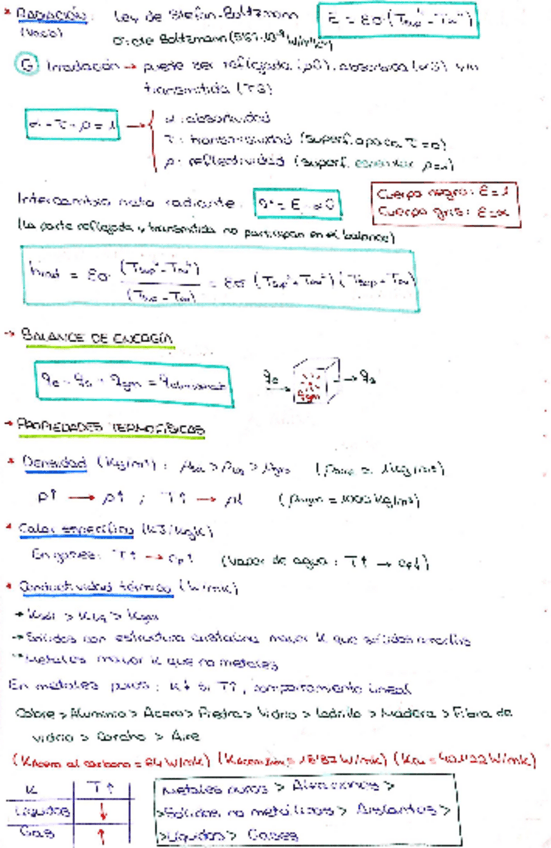 * RADIACIÓN: Ley de Stefan-Boltzmann E = εσ(Tsup⁴-T∞⁴)
(Vacío) σ: cte Boltzmann
G Irradiación → puede ser reflejada (ρG), absorbida (αG) y/o
transmitida (τG)
α: absortividad
τ: transmisividad (superf. opaca τ=0)
ρ: reflectividad (superf.
Intercambio neto radiante: Cuerpo negro: ε=1
Cuerpo gris: ε=α
(La parte reflejada y transmitida no participan en el balance)
hrad = εσ (Tsup⁴-T∞⁴)/(Tsup-T∞) = εσ
→ BALANCE DE ENERGÍA
qe - qs + qgen = qalmacenado qe → qgen → qs
→ PROPIEDADES TERMOFÍSICAS
* Densidad (kg/m³): ρsol > ρliq > ρgas
P↑ → ρ↑ ; T↑ → ρ↓ (ρagua = 1000 kg/m³)
* Calor específico (kJ/kgK)
En gases: T↑ → cp↑ (vapor de agua: T↑ → cp↓)
* Conductividad térmica (W/mK)
→ Ksol > Kliq > Kgas
→ Sólidos con estructura cristalina mayor K que sólidos amorfos
→ Metales mayor K que no metales
En metales puros: K↓ si T↑, comportamiento lineal
Cobre > Aluminio > Acero > Piedra > Vidrio > Ladrillo > Madera > Fibra de
vidrio > Corcho > Aire
(Kacero al carbono = 64 W/mK)
K T↑ Metales puros > Aleaciones >
Líquidos ↓ > Sólidos no metálicos > Aislantes >
Gas ↑ > Líquidos > Gases